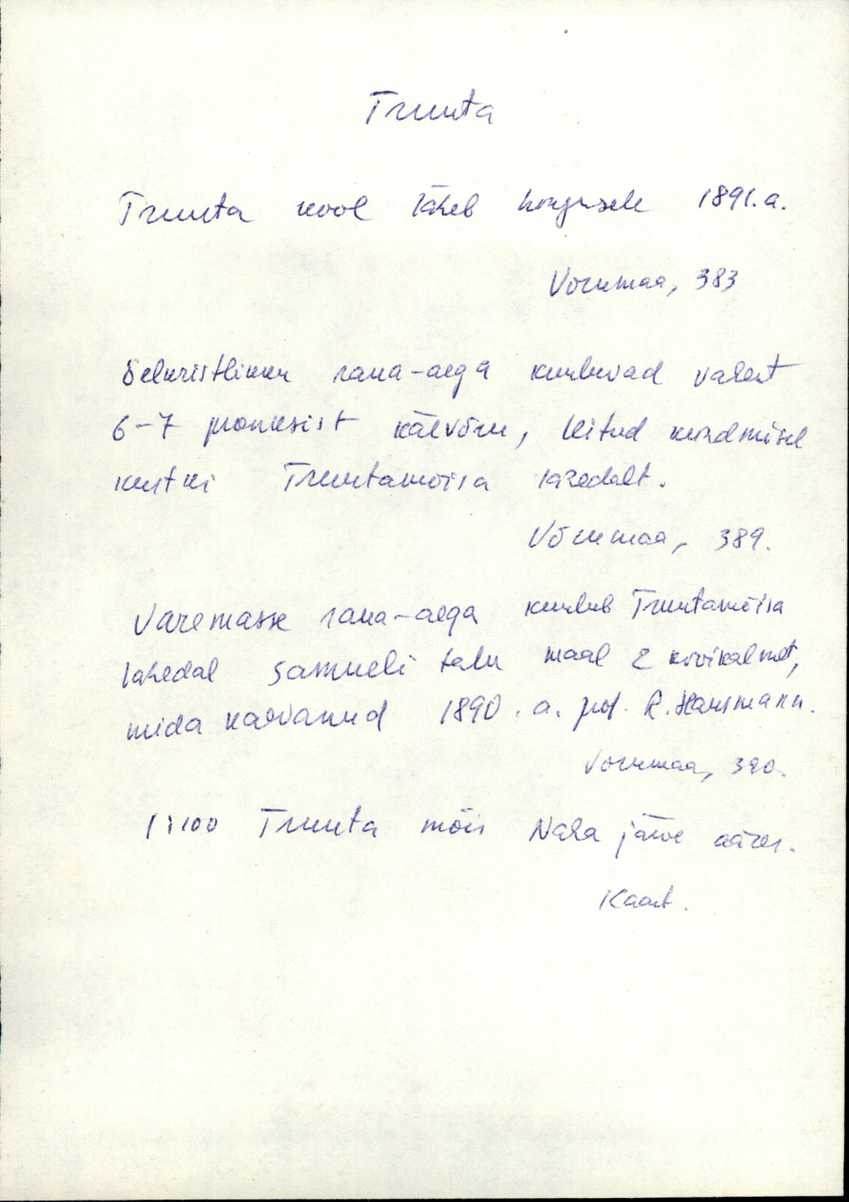 Truuta
Truuta kool läheb hingusele 1891.a.
Võrumaa, 383
Eelkristlikku raua-aega kuuluvad
6-7 pronksist käevõru, leitud kündmisel
kuskil Truutamõisa lähedalt.
Võrumaa, 389.
Varemasse raua-aega kuulub Truutamõisa
lähedal Samueli talu maal 2 kivikalmet,
mida kaevanud 1890.a. prof. R. Hausmann.
Võrumaa, 390.
1:100 Truuta mõis Naha järve ääres.
Kaart.